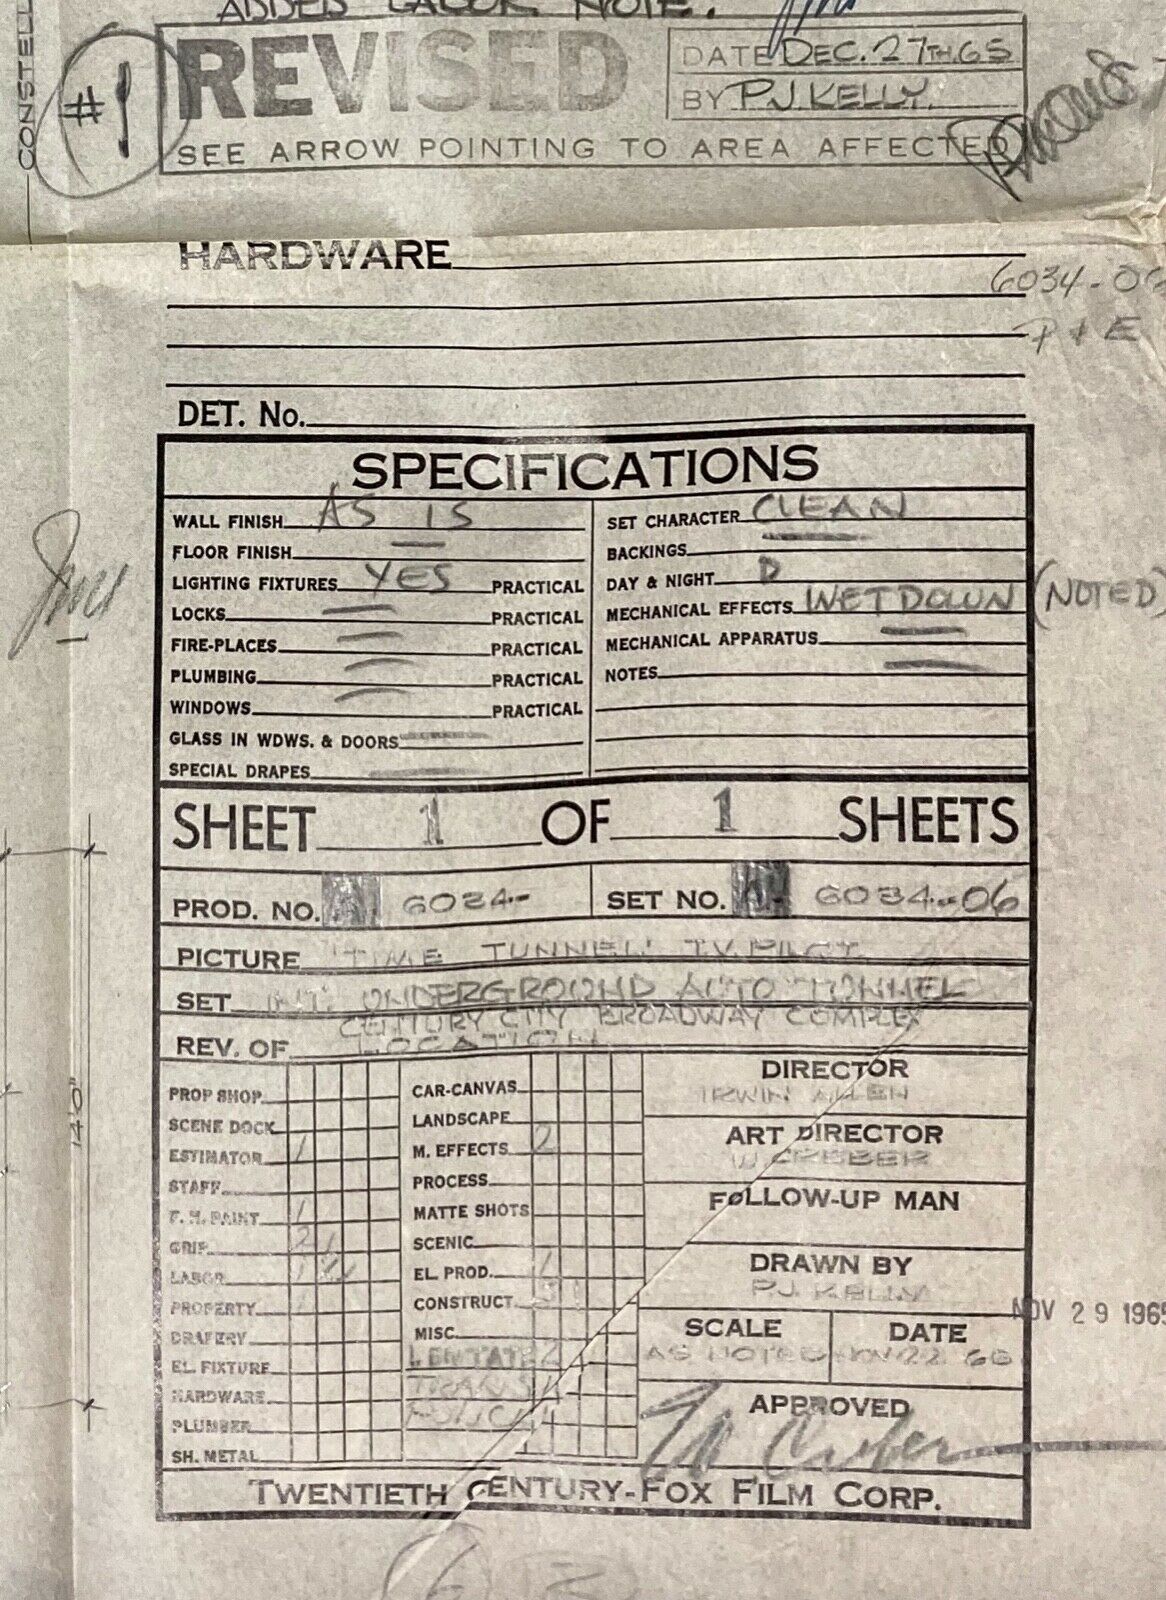 ADDED LABOR NOTE.
#1
REVISED
DATE DEC. 27TH. 65
BY P.J. KELLY.
SEE ARROW POINTING TO AREA AFFECTED
CONSTELL
HARDWARE
6034-06
P & E
DET. No.
SPECIFICATIONS
WALL FINISH AS IS
FLOOR FINISH —
LIGHTING FIXTURES YES PRACTICAL
LOCKS — PRACTICAL
FIRE-PLACES — PRACTICAL
PLUMBING — PRACTICAL
WINDOWS — PRACTICAL
GLASS IN WDWS. & DOORS —
SPECIAL DRAPES —
SET CHARACTER CLEAN
BACKINGS —
DAY & NIGHT D
MECHANICAL EFFECTS WETDOWN (NOTED)
MECHANICAL APPARATUS —
NOTES —
SHEET 1 OF 1 SHEETS
PROD. NO. 6034-
SET NO. 6034-06
PICTURE "TIME TUNNEL" T.V. PILOT.
SET INT. UNDERGROUND AUTO TUNNEL
CENTURY CITY BROADWAY COMPLEX
REV. OF LOCATION
PROP SHOP
SCENE DOCK
ESTIMATOR 1
STAFF
F. H. PAINT 1
GRIP 2 1
LABOR 1
PROPERTY 1
DRAPERY
EL. FIXTURE
HARDWARE
PLUMBER
SH. METAL
CAR-CANVAS
LANDSCAPE
M. EFFECTS 2
PROCESS
MATTE SHOTS
SCENIC
EL. PROD. 1
CONSTRUCT.
MISC.
TRANS
DIRECTOR
IRWIN ALLEN
ART DIRECTOR
W CREBER
FOLLOW-UP MAN
DRAWN BY
P.J. KELLY
SCALE
AS NOTED
DATE
NOV 29 1965
APPROVED
TWENTIETH CENTURY-FOX FILM CORP.
14'0"